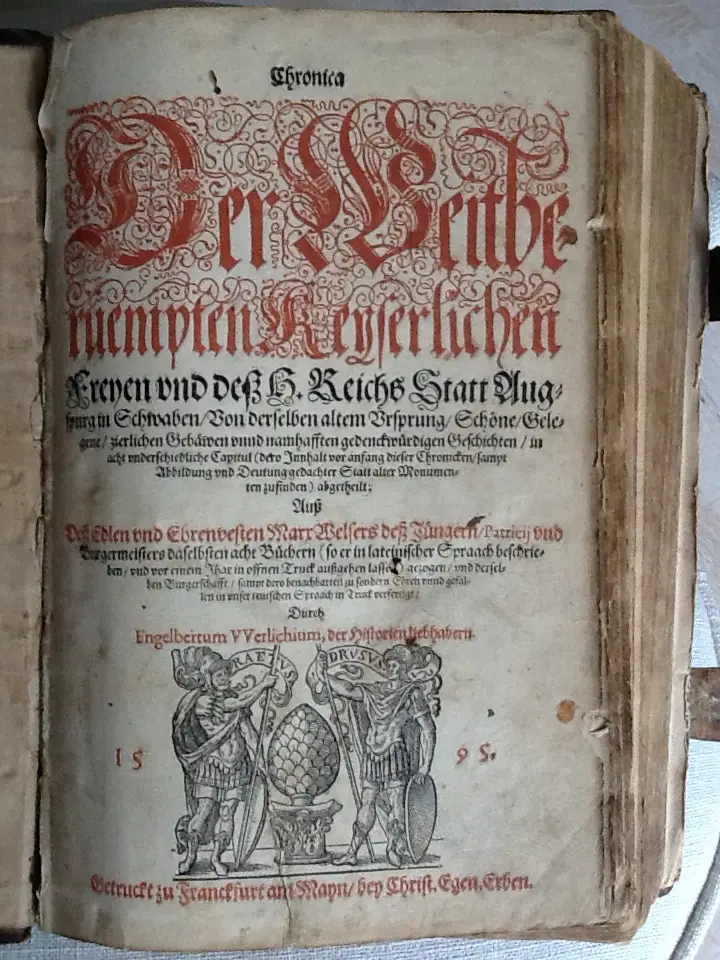 Chronica
Der Weitbe-
ruempten Keyserlichen
Freyen vnd deß H. Reichs Statt Aug-
spurg in Schwaben / Von derselben altem Vrsprung / Schöne / Gele-
gene / zierlichen Gebäwen vnnd namhafften gedenckwürdigen Geschichten / in
acht vnderschiedliche Capitul (dero Innhalt vor anfang dieser Chronicken / sampt
Abbildung vnd Deutung gedachter Statt alter Monumen-
ten zufinden) abgetheilt:
Auß
Deß Edlen vnd Ehrenvesten Marx Welsers deß Jüngern / Patricij vnd
Burgermeisters daselbsten acht Büchern (so er in lateinischer Spraach beschrie-
ben / vnd vor einem Jhar in offnen Truck außgehen lassen) gezogen / vnd dersel-
ben Burgerschafft / sampt dero benachbarten zu sondern Ehren vnnd gefal-
len in vnser teutschen Spraach in Truck verfertigt /
Durch
Engelbertum VVerlichium, der Historien liebhabern.
RAETUS
DRVSVS
15 95.
Getruckt zu Franckfurt am Mayn / bey Christ. Egen. Erben.